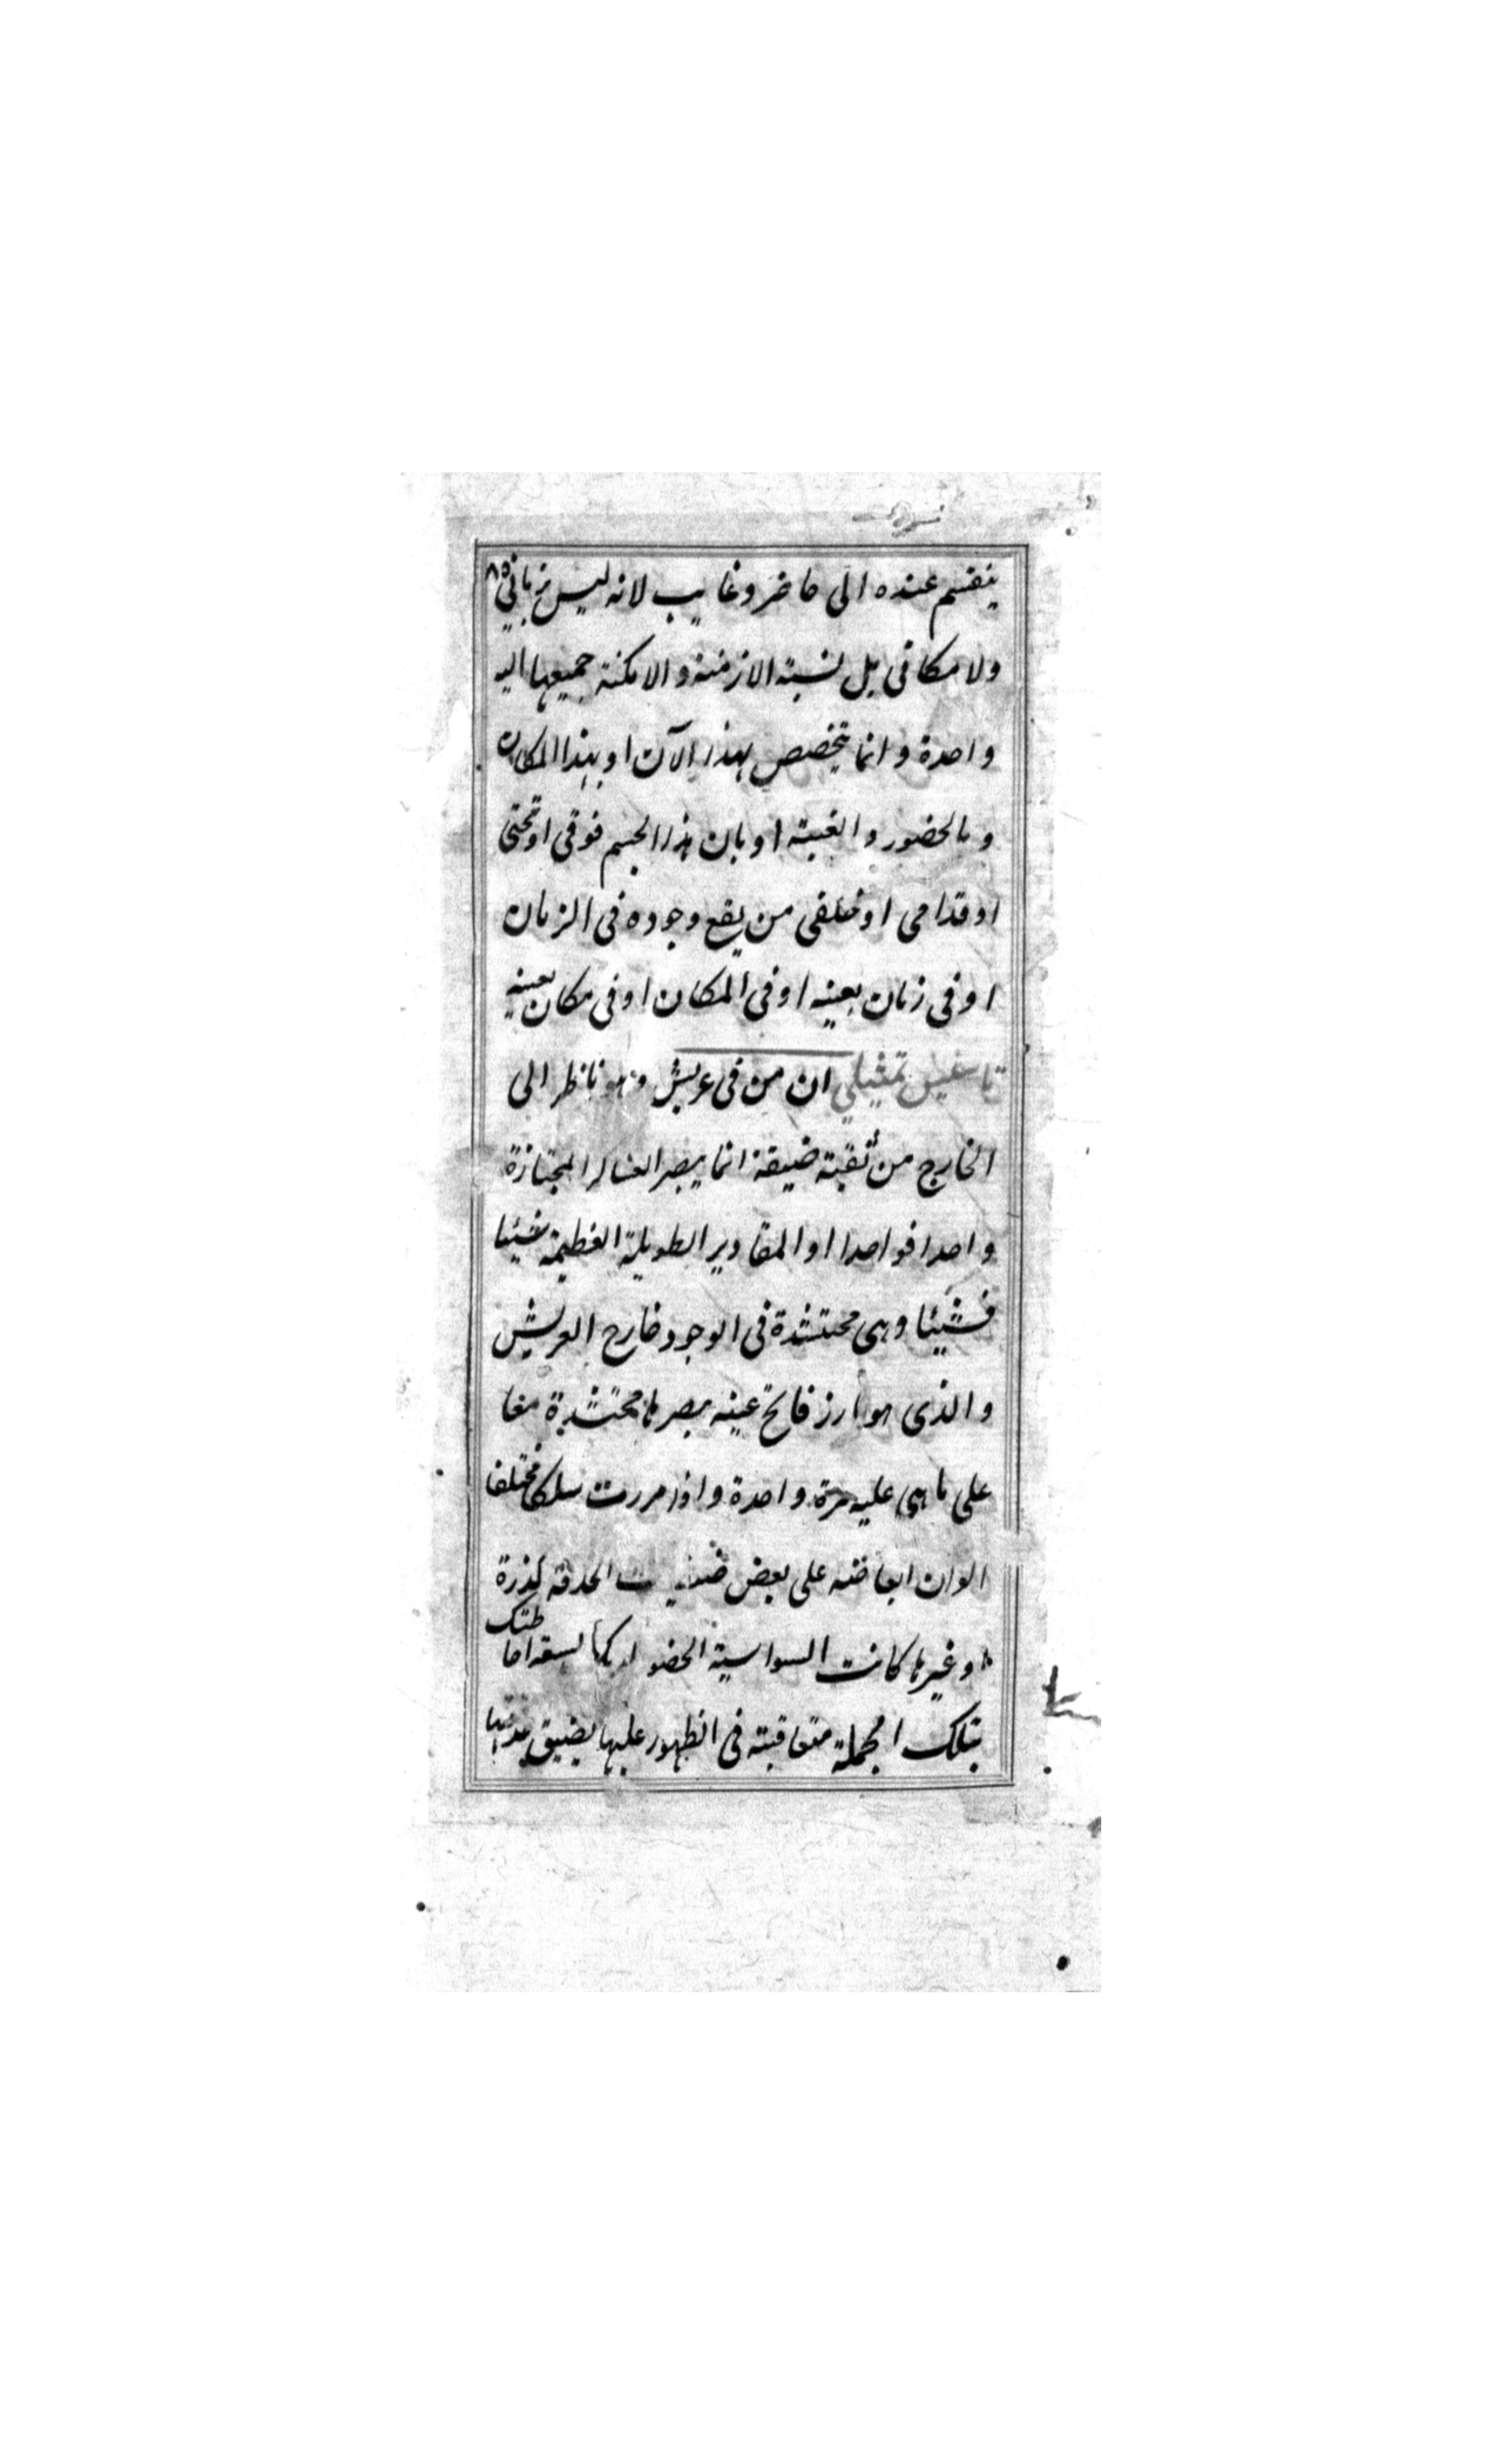 ينقسم عنده الى حاضر وغايب لانه ليس بزماني
ولا مكاني بل نسبة الازمنة والامكنة جميعها اليه
واحدة وانما يتخصص بهذا الآن او بهذا المكان
وبالحضور والغيبة او بان هذا الجسم فوقي او تحتي
او قدامي او خلفي من يقع وجوده في الزمان
او في زمان بعينه او في المكان او في مكان بعينه
تمثيلي ان من في عريش وهو ناظر الى
الخارج من ثقبة ضيقة انما يبصر العساكر المجتازة
واحدا فواحدا او المقادير الطويلة العظيمة شيئا
فشيئا وهي محتشدة في الوجود خارج العريش
والذي هو بارز فاتح عينه يبصرها محتشدة معا
على ما هي عليه مرة واحدة واذا مررت سلكا مختلفا
الوان ابعاضه على بعض الحدقة كذرة
او غيرها كانت السواسية الحضور لديك لسعة احا
طتك
بتلك الجملة متعاقبة في الظهور عليها لضيق حدقتها